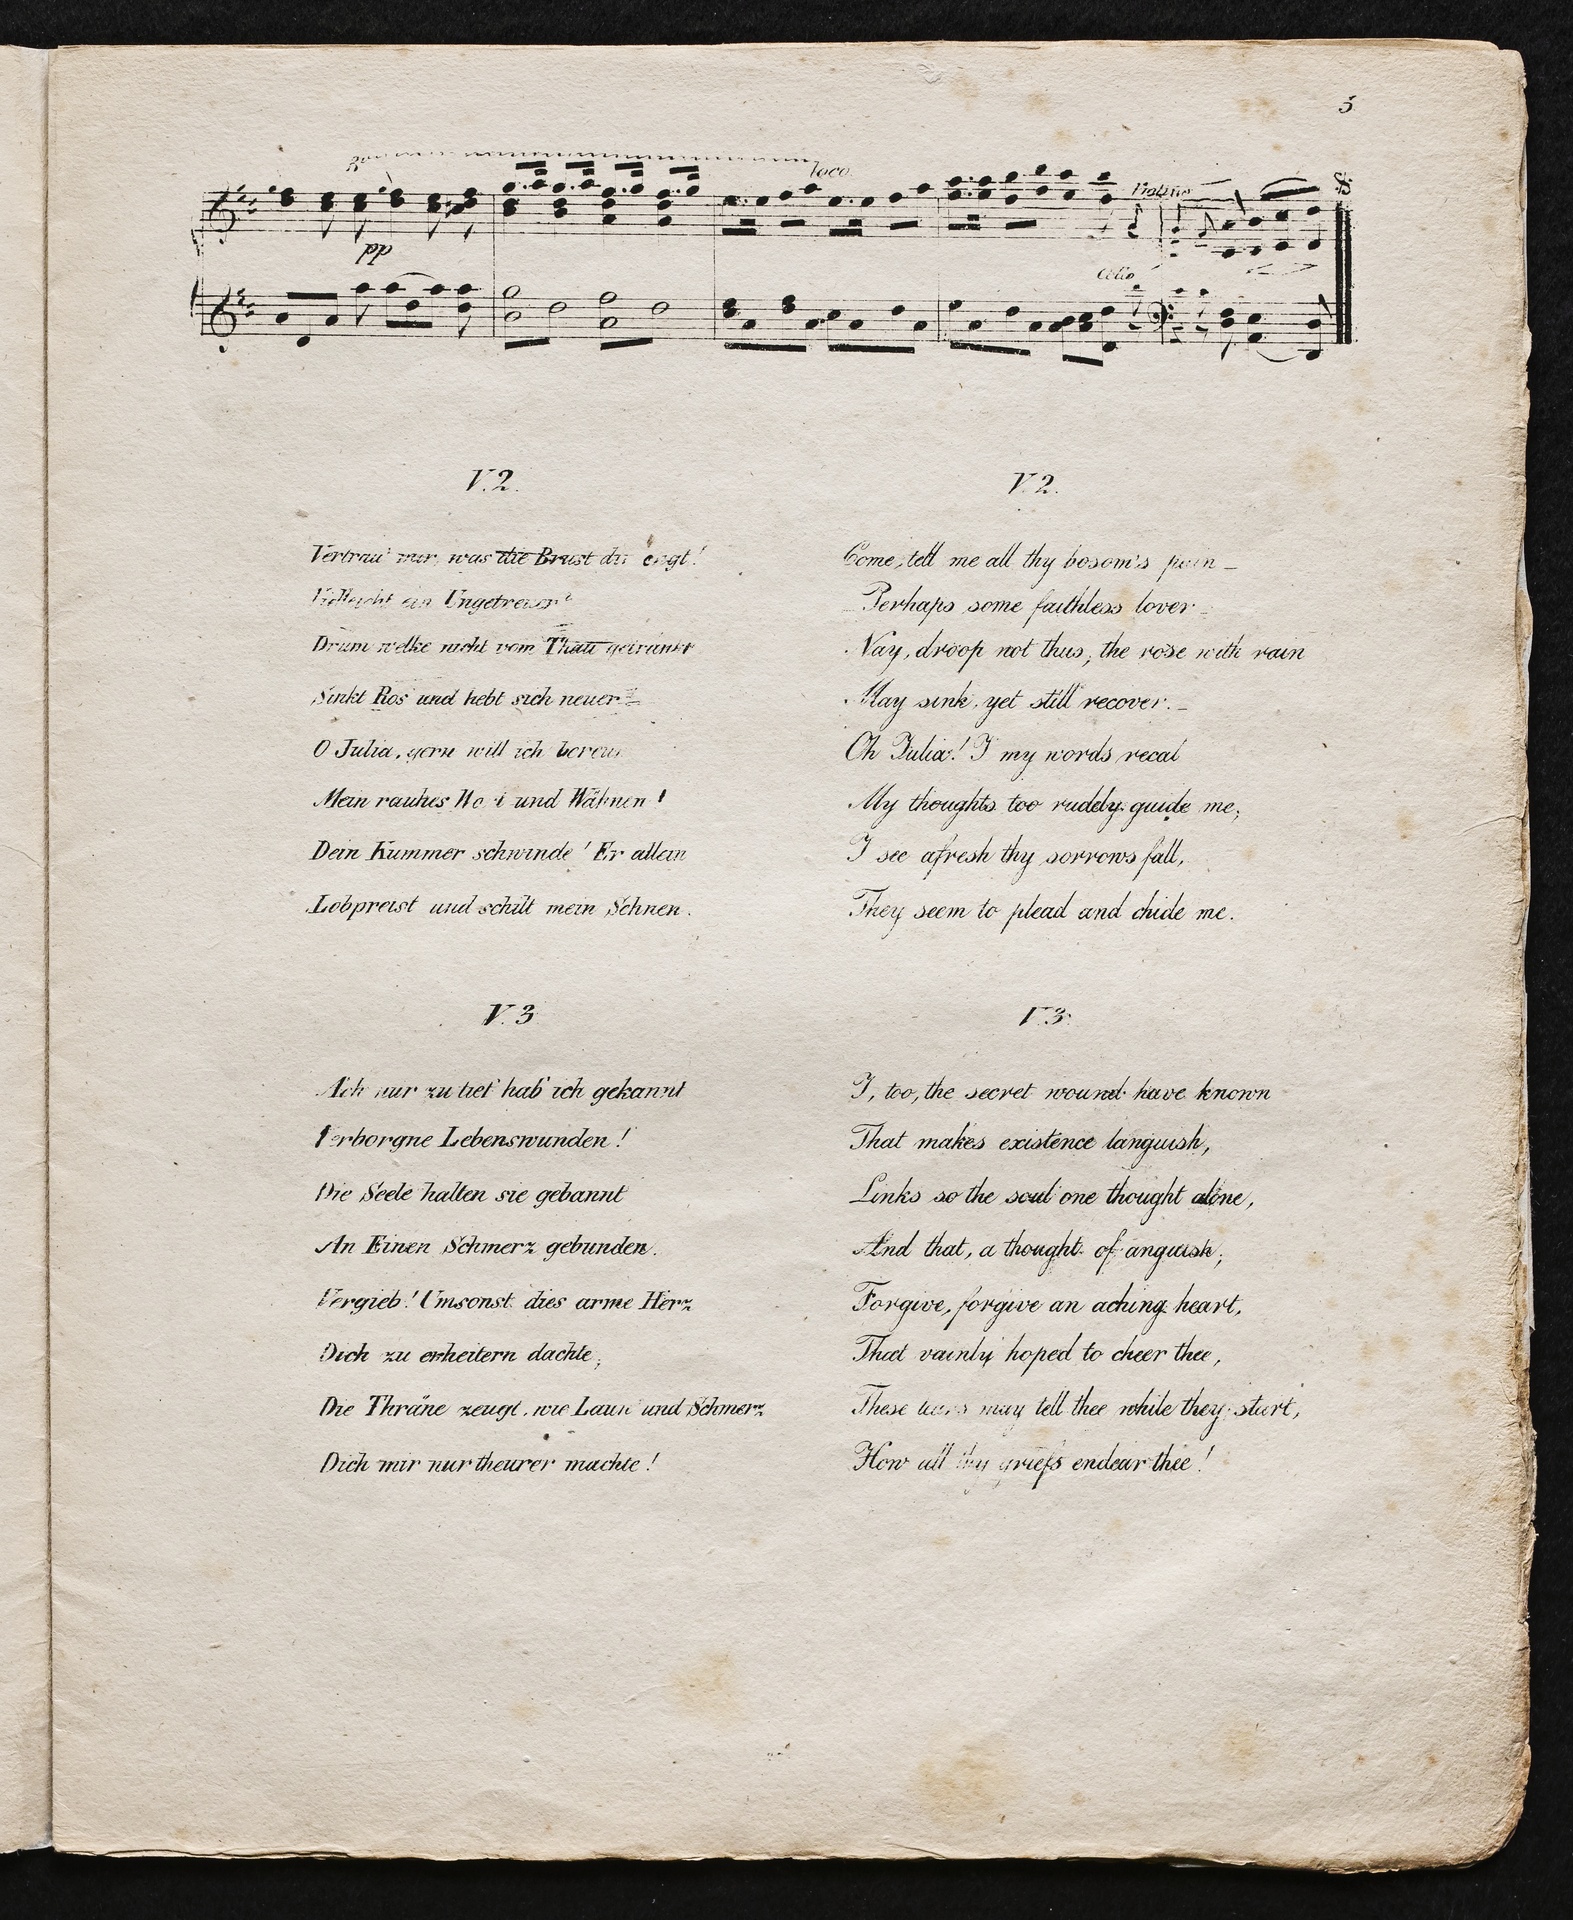 5
loco
pp
Violino
Cello
V. 2.
Vertrau' nur, was die Brust dir engt!
Vielleicht ein Ungetreuer?
Drum welke nicht vom Thau getränkt
Sinkt Ros' und hebt sich neuer
O Julia, gern will ich bereun
Mein rauhes Wort und Wähnen!
Dein Kummer schwinde! Er allein
Lobpreist und schilt mein Sehnen.
V. 3
Ach nur zu tief hab' ich gekannt
Verborgne Lebenswunden!
Die Seele halten sie gebannt
An Einen Schmerz gebunden.
Vergieb! Umsonst dies arme Herz
Dich zu erheitern dachte;
Die Thräne zeugt, wie Laun' und Schmerz
Dich mir nur theurer machte!
V. 2.
Come, tell me all thy bosom's pain –
Perhaps some faithless lover –
Nay, droop not thus; the rose with rain
May sink, yet still recover. –
Oh Julia! I my words recal
My thoughts too rudely guide me;
I see afresh thy sorrows fall,
They seem to plead and chide me.
V. 3.
I, too, the secret wound have known
That makes existence languish,
Links so the soul one thought alone,
And that, a thought of anguish;
Forgive, forgive an aching heart,
That vainly hoped to cheer thee,
These tears may tell thee while they start,
How all thy griefs endear thee!